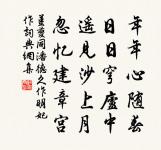 年年心随春
日日穹庐中
遥见沙上月
忽忆建章宫
姜夔同潘德久作明妃
作词典网集